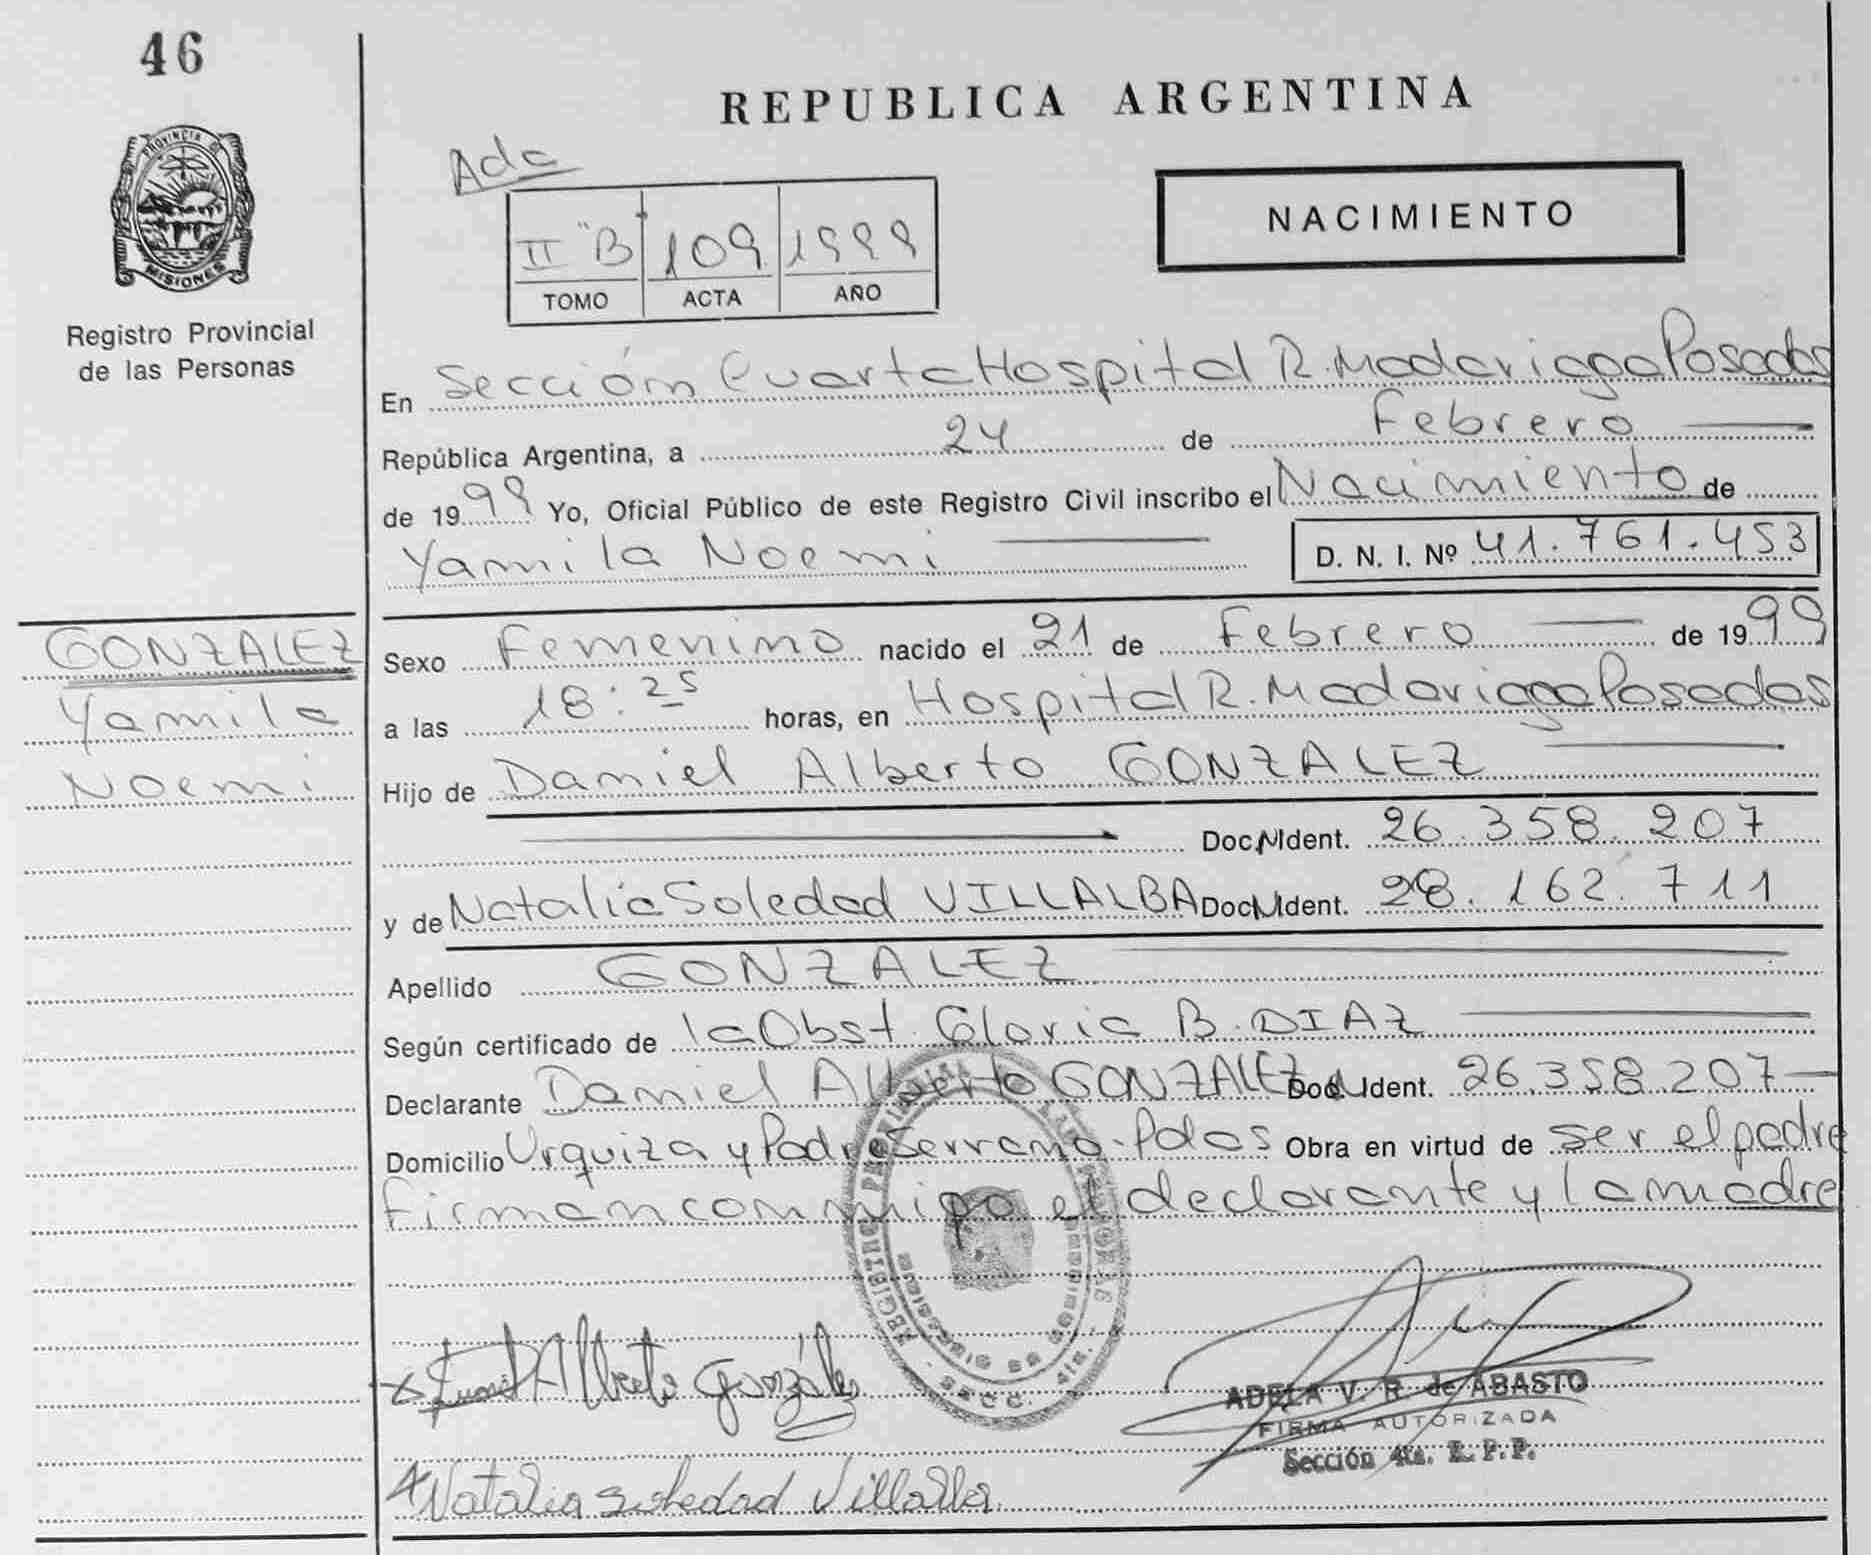 46
REPUBLICA ARGENTINA
PROVINCIA DE
MISIONES
Registro Provincial
de las Personas
Ada
II "B" 109 1999
TOMO ACTA AÑO
NACIMIENTO
En Sección Cuarta Hospital R. Madariaga Posadas
República Argentina, a 24 de Febrero
de 1999 Yo, Oficial Público de este Registro Civil inscribo el Nacimiento de
Yamila Noemi D. N. I. Nº 41.761.453
GONZALEZ
Yamila
Noemi
Sexo Femenino nacido el 21 de Febrero de 1999
a las 18:25 horas, en Hospital R. Madariaga Posadas
Hijo de Daniel Alberto GONZALEZ
Doc. N Ident. 26.358.207
y de Natalia Soledad VILLALBA Doc. N Ident. 28.162.711
Apellido GONZALEZ
Según certificado de la Obst. Gloria B. DIAZ
Declarante Daniel Alberto GONZALEZ Doc. N Ident. 26.358.207
Domicilio Urquiza y Padre Serrano - Pdas Obra en virtud de ser el padre
firman conmigo el declarante y la madre
REGISTRO PROVINCIAL DE LAS PERSONAS
SECC. 4ta.
Alberto González
ADELA V. R. de ABASTO
FIRMA AUTORIZADA
Sección 4ta. R. P. P.
Natalia Soledad Villalba